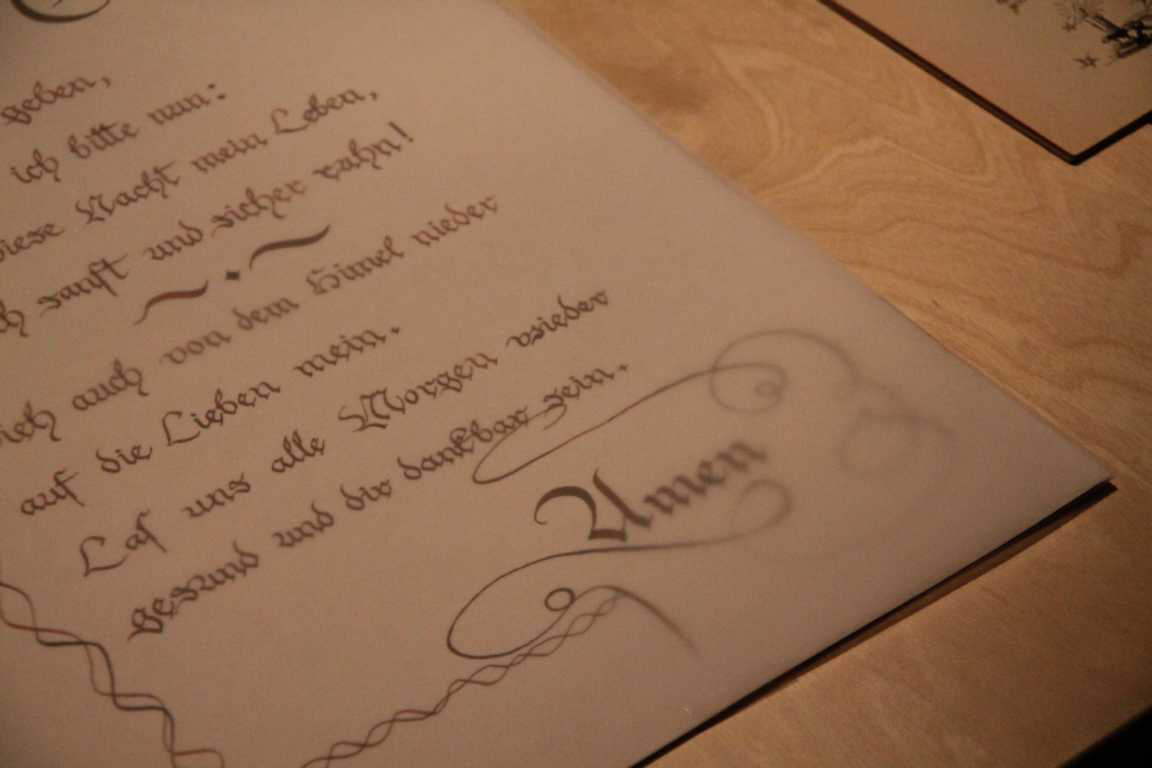 geben,
ich bitte nun:
diese Nacht mein Leben,
ch sanft und sicher ruhn!
ieh auch von dem Himel nieder
auf die Lieben mein.
Laß uns alle Morgen wieder
gesund und dir dankbar sein.
Amen